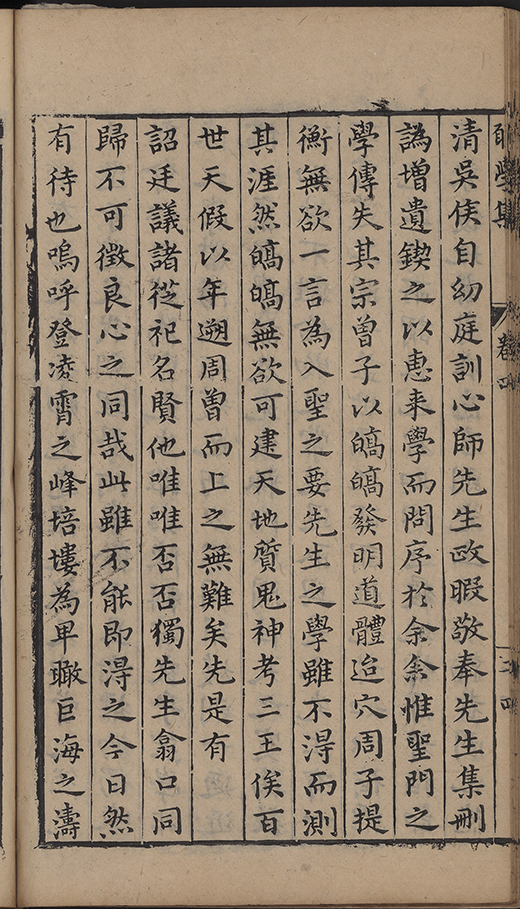 卷四
清吳侯自幼庭訓心師先生政暇敬奉先生集刪
譌增遺鍥之以惠来學而問序於余余惟聖門之
學傳失其宗曾子以皜皜發明道體迨穴周子提
衡無欲一言為入聖之要先生之學雖不淂而測
其涯然皜皜無欲可建天地質鬼神考三王俟百
世天假以年遡周曾而上之無難矣先是有
詔廷議諸從祀名賢他唯唯否否獨先生翕口同
歸不可徵良心之同哉此雖不能即淂之今日然
有待也嗚呼登凌霄之峰培塿為卑瞰巨海之濤